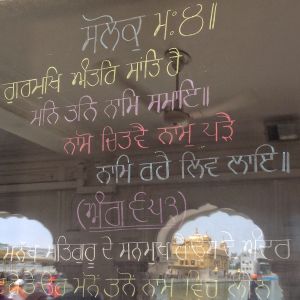 ਸਲੋਕੁ ਮਃ ੪॥
ਗੁਰਮੁਖਿ ਅੰਤਰਿ ਸਾਂਤਿ ਹੈ
ਮਨਿ ਤਨਿ ਨਾਮਿ ਸਮਾਇ॥
ਨਾਮੋ ਚਿਤਵੈ ਨਾਮੁ ਪੜੈ
ਨਾਮਿ ਰਹੈ ਲਿਵ ਲਾਇ॥
(ਅੰਗ ੬੫੩)
ਮਨੁੱਖ ਸਤਿਗੁਰੂ ਦੇ ਸਨਮੁਖ ਹੈ ਦੇ ਅੰਦਰ
ਮਨੋਂ ਤਨੋਂ ਨਾਮ ਵਿਚ ਲੀਨ